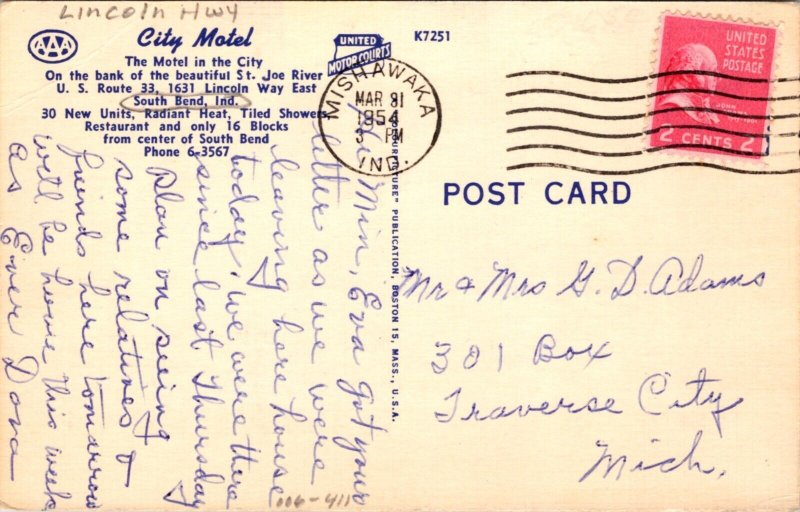 LINCOLN HWY
AAA
City Motel
The Motel in the City
On the bank of the beautiful St. Joe River
U. S. Route 33, 1631 Lincoln Way East
South Bend, Ind.
30 New Units, Radiant Heat, Tiled Showers
Restaurant and only 16 Blocks
from center of South Bend
Phone 6-3567
UNITED
MOTOR COURTS
K7251
MISHAWAKA
MAR 31
1954
3 PM
IND.
UNITED
STATES
POSTAGE
JOHN
2 CENTS 2
POST CARD
PUBLICATION, BOSTON 15, MASS., U.S.A.
Min, Eva got your
letter as we were
leaving here house
today. we were there
since last Thursday
plan on seeing
some relatives &
friends here tomarrow
will be home this week
as Ever Dora
006-411
Mr & Mrs G. D. Adams
301 Box
Traverse City
Mich.